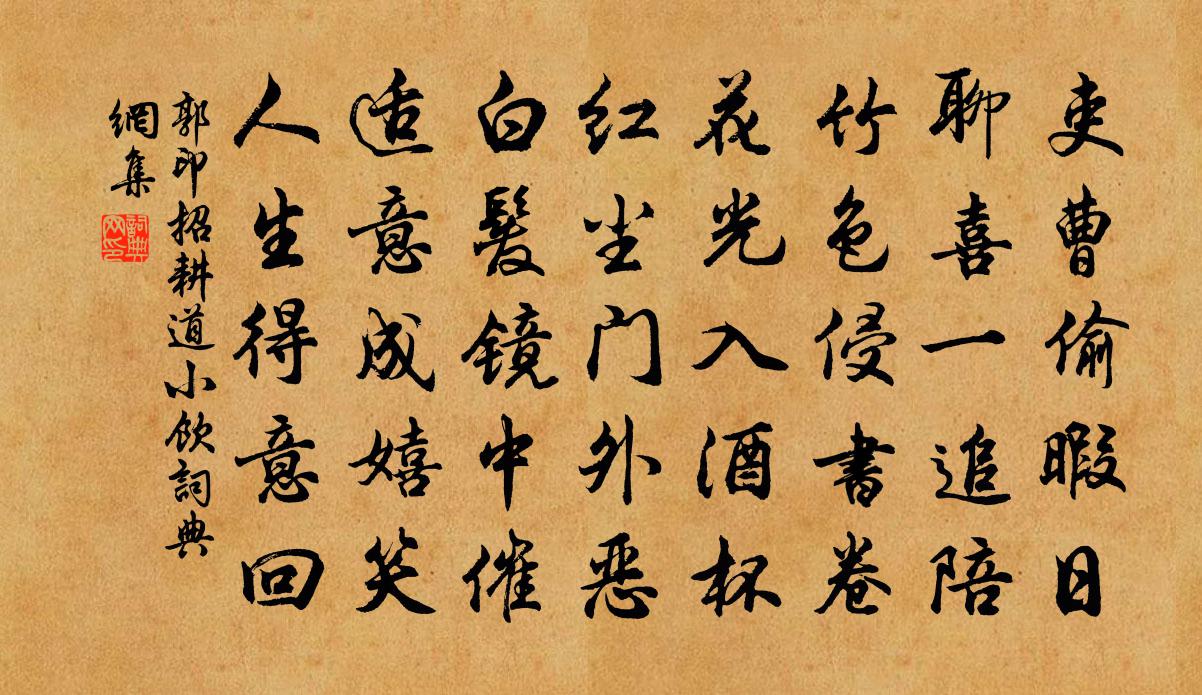 吏曹偷暇日
聊喜一追陪
竹色侵书卷
花光入酒杯
红尘门外恶
白发镜中催
适意成嬉笑
人生得意回
郭印招耕道小饮词典
網集
詞典
网印